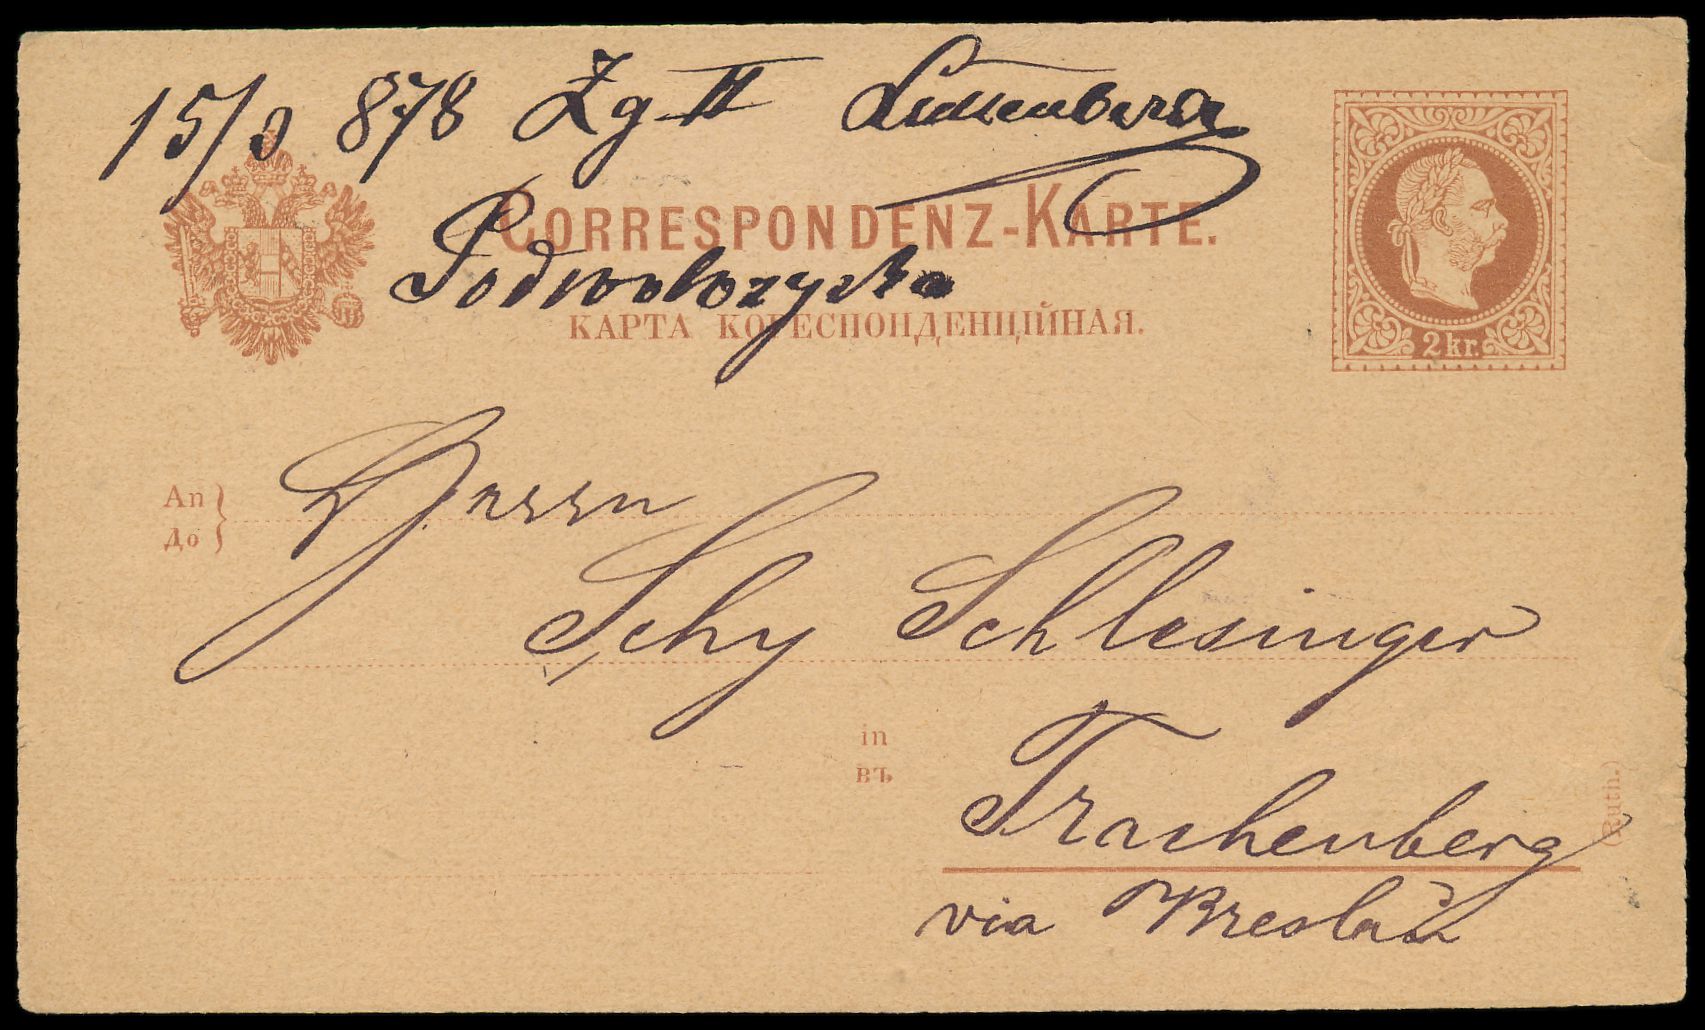 15/3 878 Zg II
CORRESPONDENZ-KARTE.
Podwoloczyska
КАРТА КОРЕСПОНДЕНЦІЙНАЯ.
2 kr.
An
До
Herrn
Schy Schlesinger
in
въ
Trachenberg
(Ruth.)
via Breslau